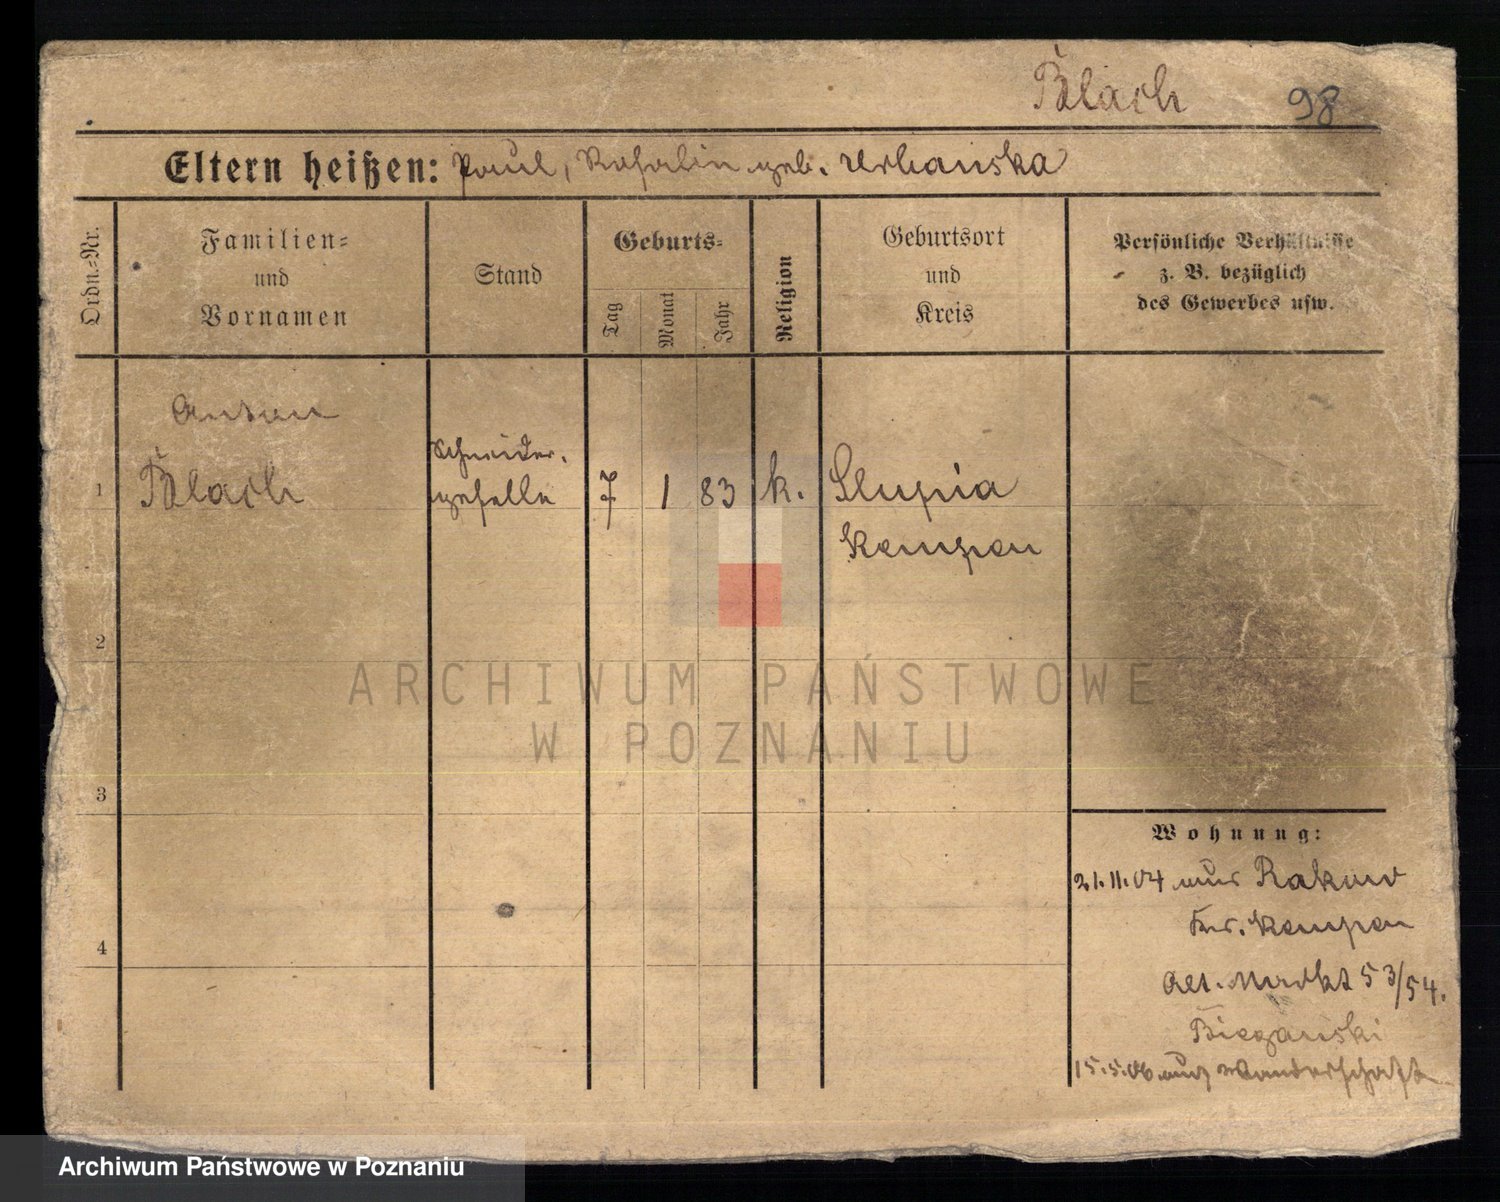 Blach 98
Eltern heißen: Paul, Rosalin geb. Urbanska
Ordn.-Nr.
Familien- und Vornamen
Stand
Geburts-
Tag
Monat
Jahr
Religion
Geburtsort und Kreis
Persönliche Verhältnisse z. B. bezüglich des Gewerbes usw.
Anton
Schneider-
1 Blach geselle 7 1 83 k. Slupia
Kempen
2
3
4
Wohnung:
21.11.04 aus Rakow
Kr. Kempen
Alt. Markt 53/54.
Biezanski
15.5.06 auf Wanderschaft
ARCHIWUM PAŃSTWOWE
W POZNANIU
Archiwum Państwowe w Poznaniu